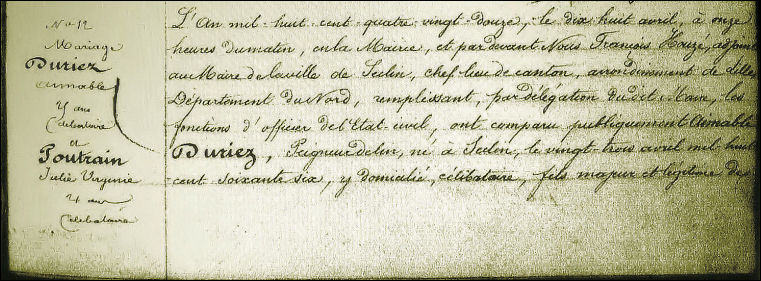 No 12
Mariage
Duriez
Aimable
ans
Célibataire
et
Poutrain
Julie Virginie
ans
Célibataire
L'An mil-huit cent-quatre vingt-douze, le dix huit avril, à onze
heures du matin, en la Mairie, et par devant Nous François Houzé, adjoint
au Maire de la ville de Seclin, chef-lieu de canton, arrondissement de Lille
Département du Nord, remplissant, par délégation du dit Maire, les
fonctions d'officier de l'Etat-civil, ont comparu publiquement Aimable
Duriez, Peigneur de lin, né à Seclin, le vingt-trois avril mil-huit
cent soixante six, y domicilié, célibataire, fils majeur et légitime de